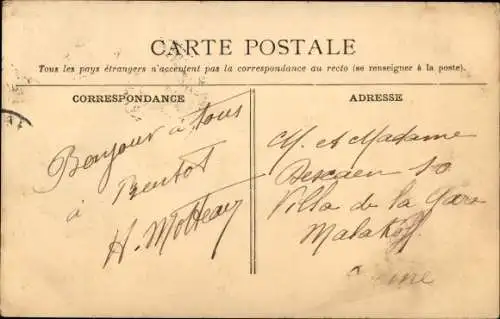 CARTE POSTALE
Tous les pays étrangers n'acceptent pas la correspondance au recto (se renseigner à la poste).
CORRESPONDANCE
Bonjour à tous
à Bientot
H. Motteau
ADRESSE
M. et Madame
Descaen 10
Villa de la Gare
Malakoff
Seine